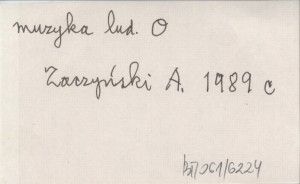 muzyka lud. O
Zaczyński A. 1989 c
BT/061/6224